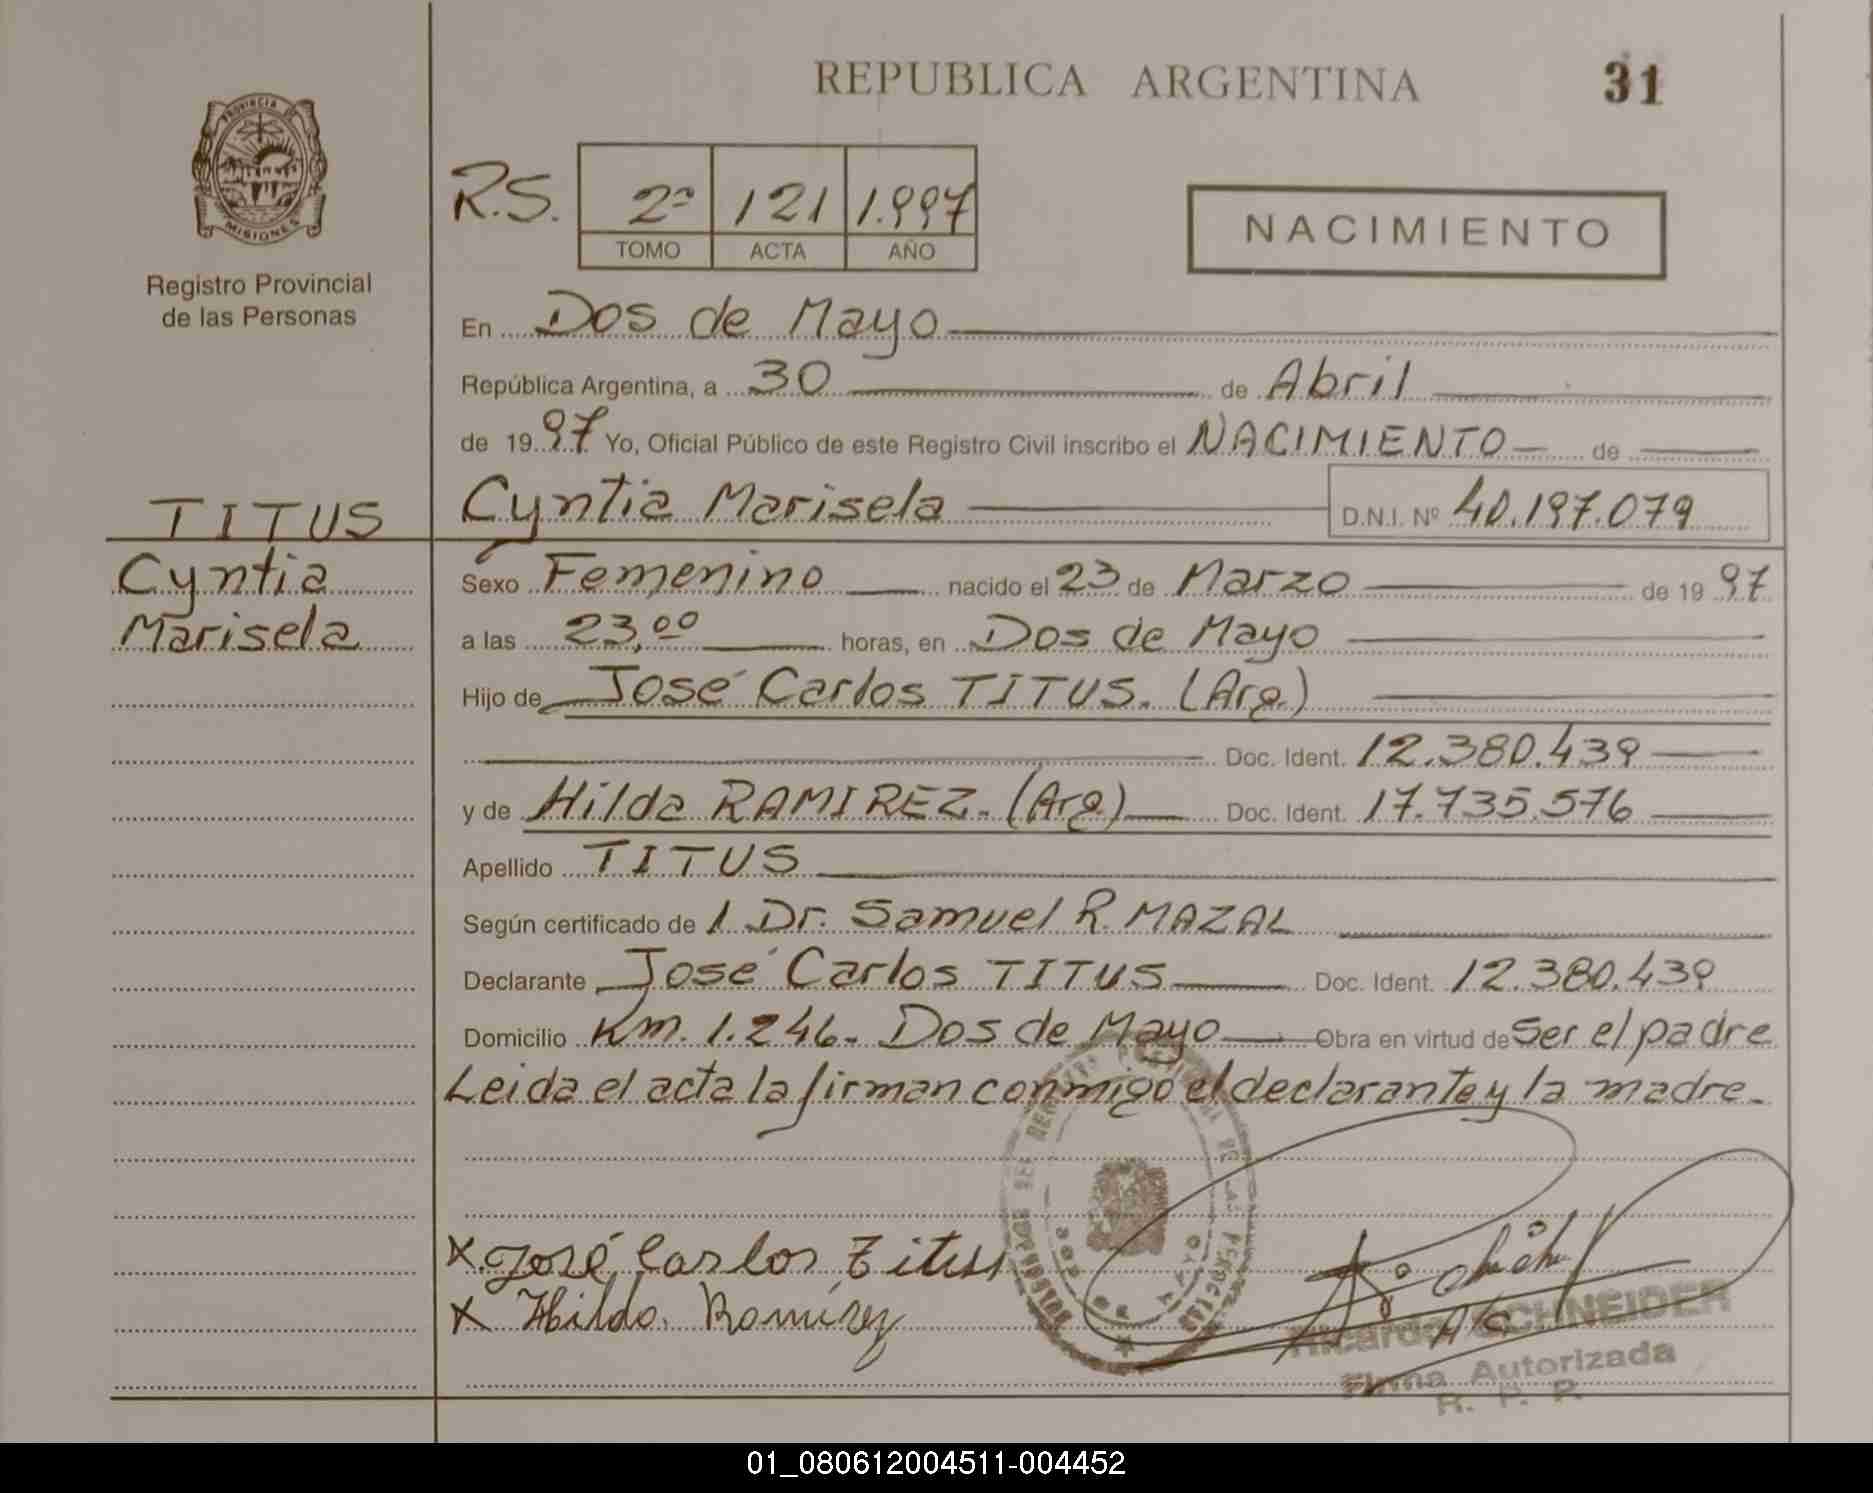 REPUBLICA ARGENTINA 31
PROVINCIA DE
MISIONES
Registro Provincial
de las Personas
R.S. 2º 121 1.997
TOMO ACTA AÑO
NACIMIENTO
En Dos de Mayo
República Argentina, a 30 de Abril
de 1997 Yo, Oficial Público de este Registro Civil inscribo el NACIMIENTO de
TITUS
Cyntia
Marisela
Cyntia Marisela D.N.I. Nº 40.197.079
Sexo Femenino nacido el 23 de Marzo de 1997
a las 23,00 horas, en Dos de Mayo
Hijo de José Carlos TITUS. (Arg)
Doc. Ident. 12.380.439
y de Hilda RAMIREZ. (Arg) Doc. Ident. 17.735.576
Apellido TITUS
Según certificado de 1. Dr. Samuel R. MAZAL
Declarante José Carlos TITUS Doc. Ident. 12.380.439
Domicilio Km. 1.246. Dos de Mayo Obra en virtud de Ser el padre
Leida el acta la firman conmigo el declarante y la madre.
X José Carlos Titus
X Hilda Ramírez
DOS DE MAYO
Ricardo SCHNEIDER
Firma Autorizada
R. P. P.
01_080612004511-004452